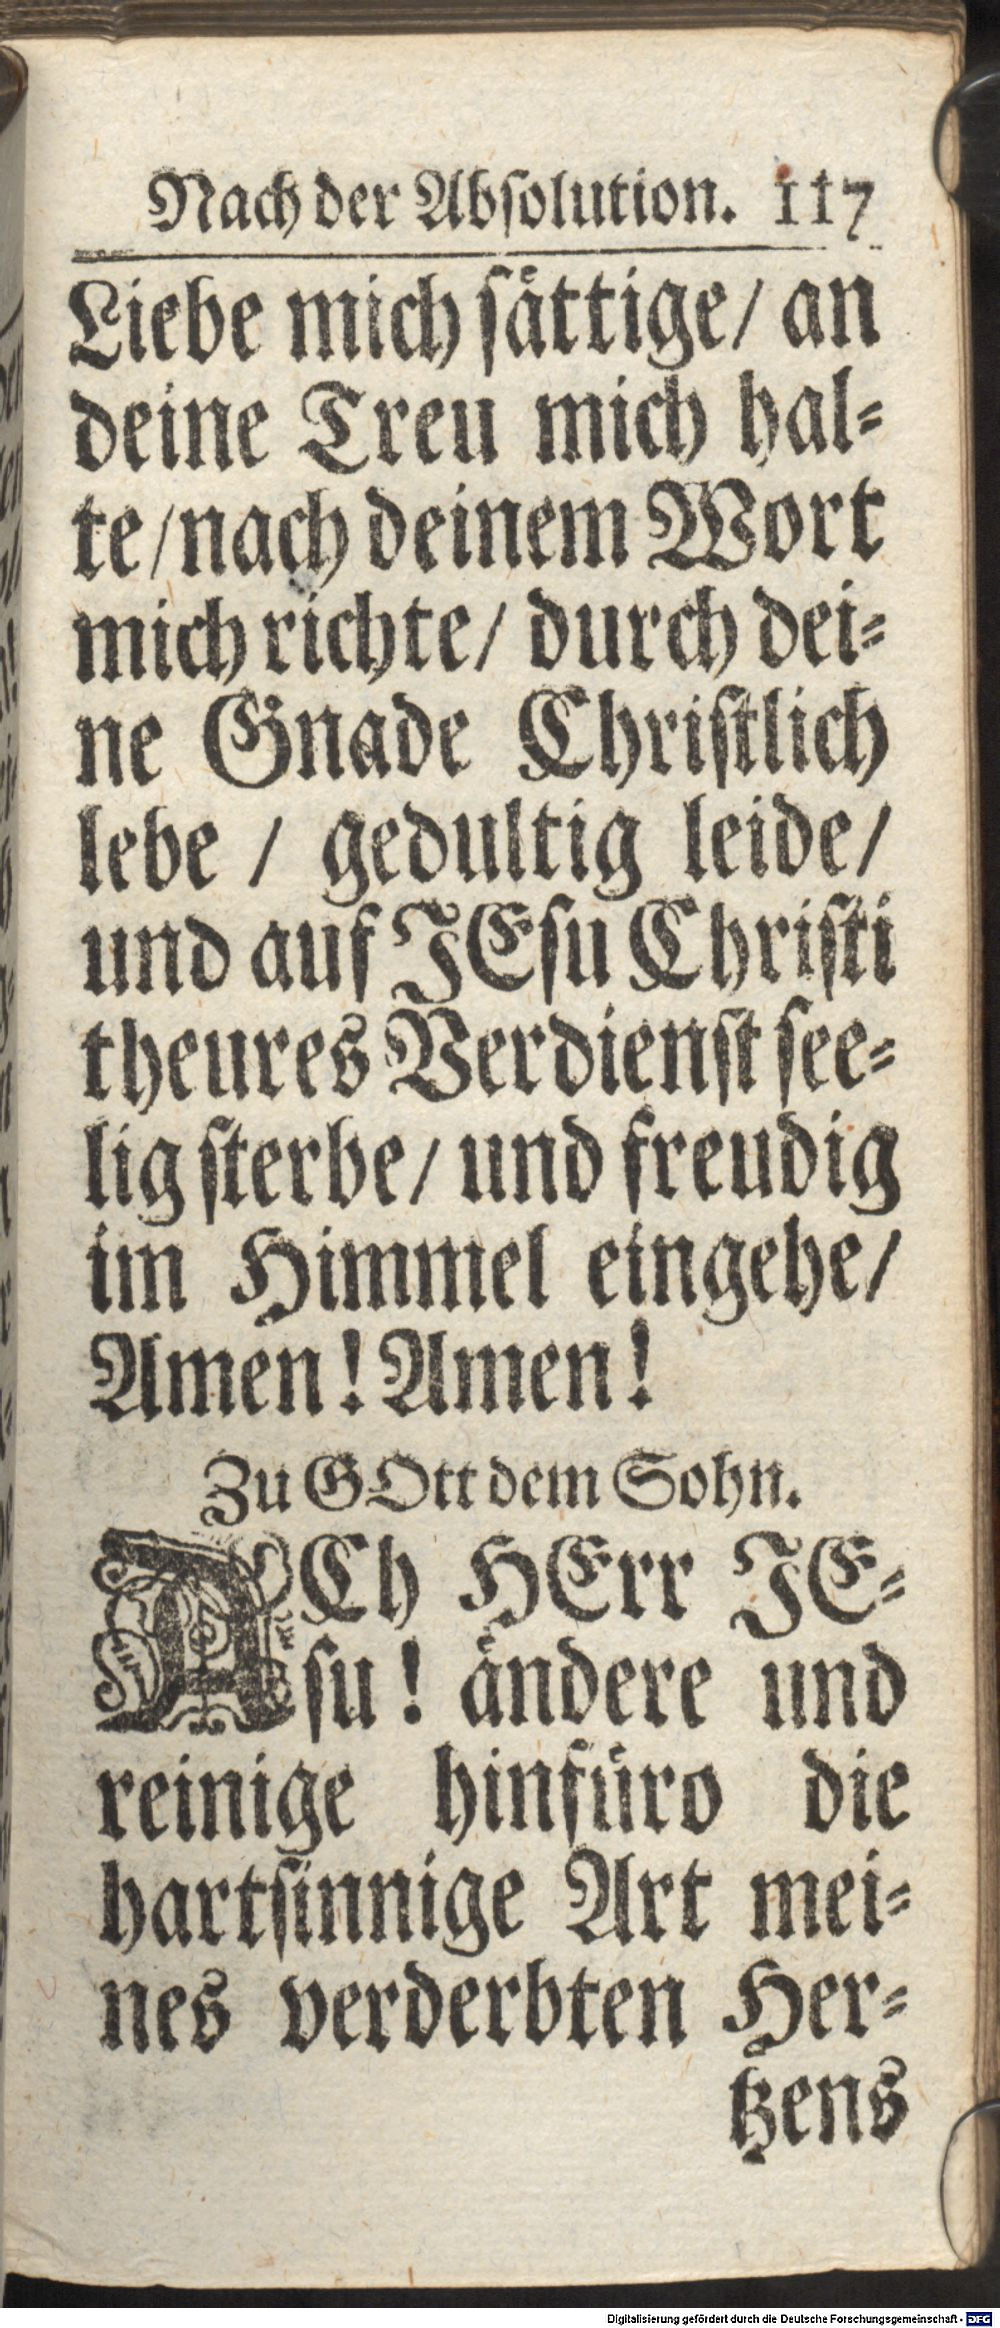 Nach der Absolution. 117
Liebe mich sättige/ an
deine Treu mich hal-
te/nach deinem Wort
mich richte/ durch dei-
ne Gnade Christlich
lebe / gedultig leide/
und auf JEsu Christi
theures Verdienst see-
lig sterbe/ und freudig
im Himmel eingehe/
Amen! Amen!
Zu GOtt dem Sohn.
ACh HErr JE-
su! ändere und
reinige hinfüro die
hartsinnige Art mei-
nes verderbten Her-
tzens
Digitalisierung gefördert durch die Deutsche Forschungsgemeinschaft - DFG